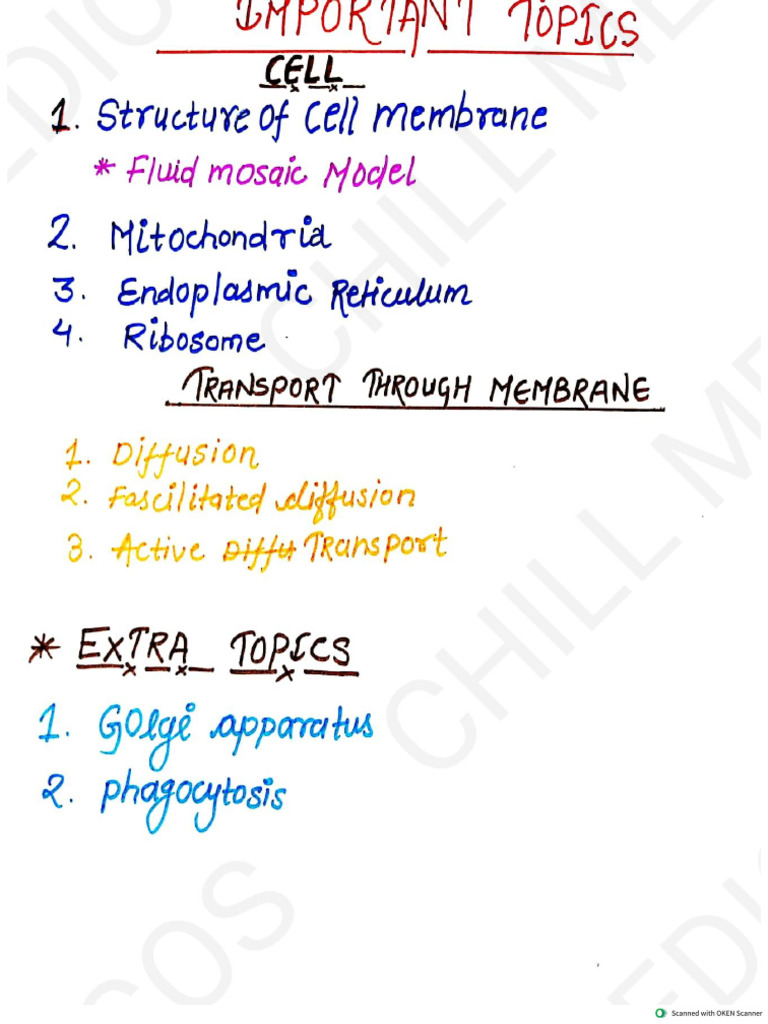 IMPORTANT TOPICS
CELL
1. Structure of cell membrane
* Fluid mosaic Model
2. Mitochondria
3. Endoplasmic Reticulum
4. Ribosome
TRANSPORT THROUGH MEMBRANE
1. Diffusion
2. Fascilitated diffusion
3. Active Diffu Transport
* EXTRA TOPICS
1. Golgi apparatus
2. phagocytosis
CHILL MEDICOS
Scanned with OKEN Scanner